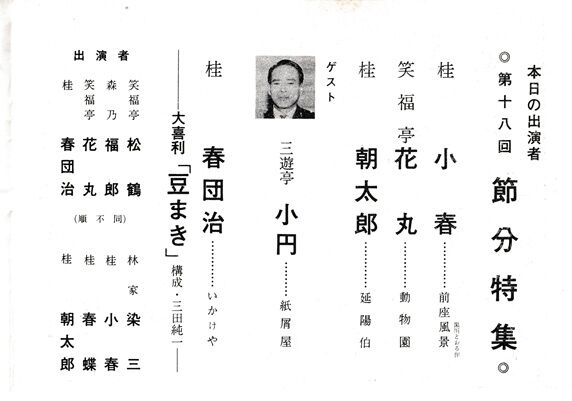 本日の出演者
◎第十八回 節分特集◎
桂 小春………前座風景
笑福亭 花丸………動物園
桂 朝太郎………延陽伯
ゲスト
三遊亭 小円……紙屑屋
桂 春団治………いかけや
――大喜利「豆まき」構成・三田純一――
出演者
笑福亭 松鶴
森乃 福郎
笑福亭 花丸
桂 春団治
(順不同)
林家 染三
桂 小春
桂 春蝶
桂 朝太郎